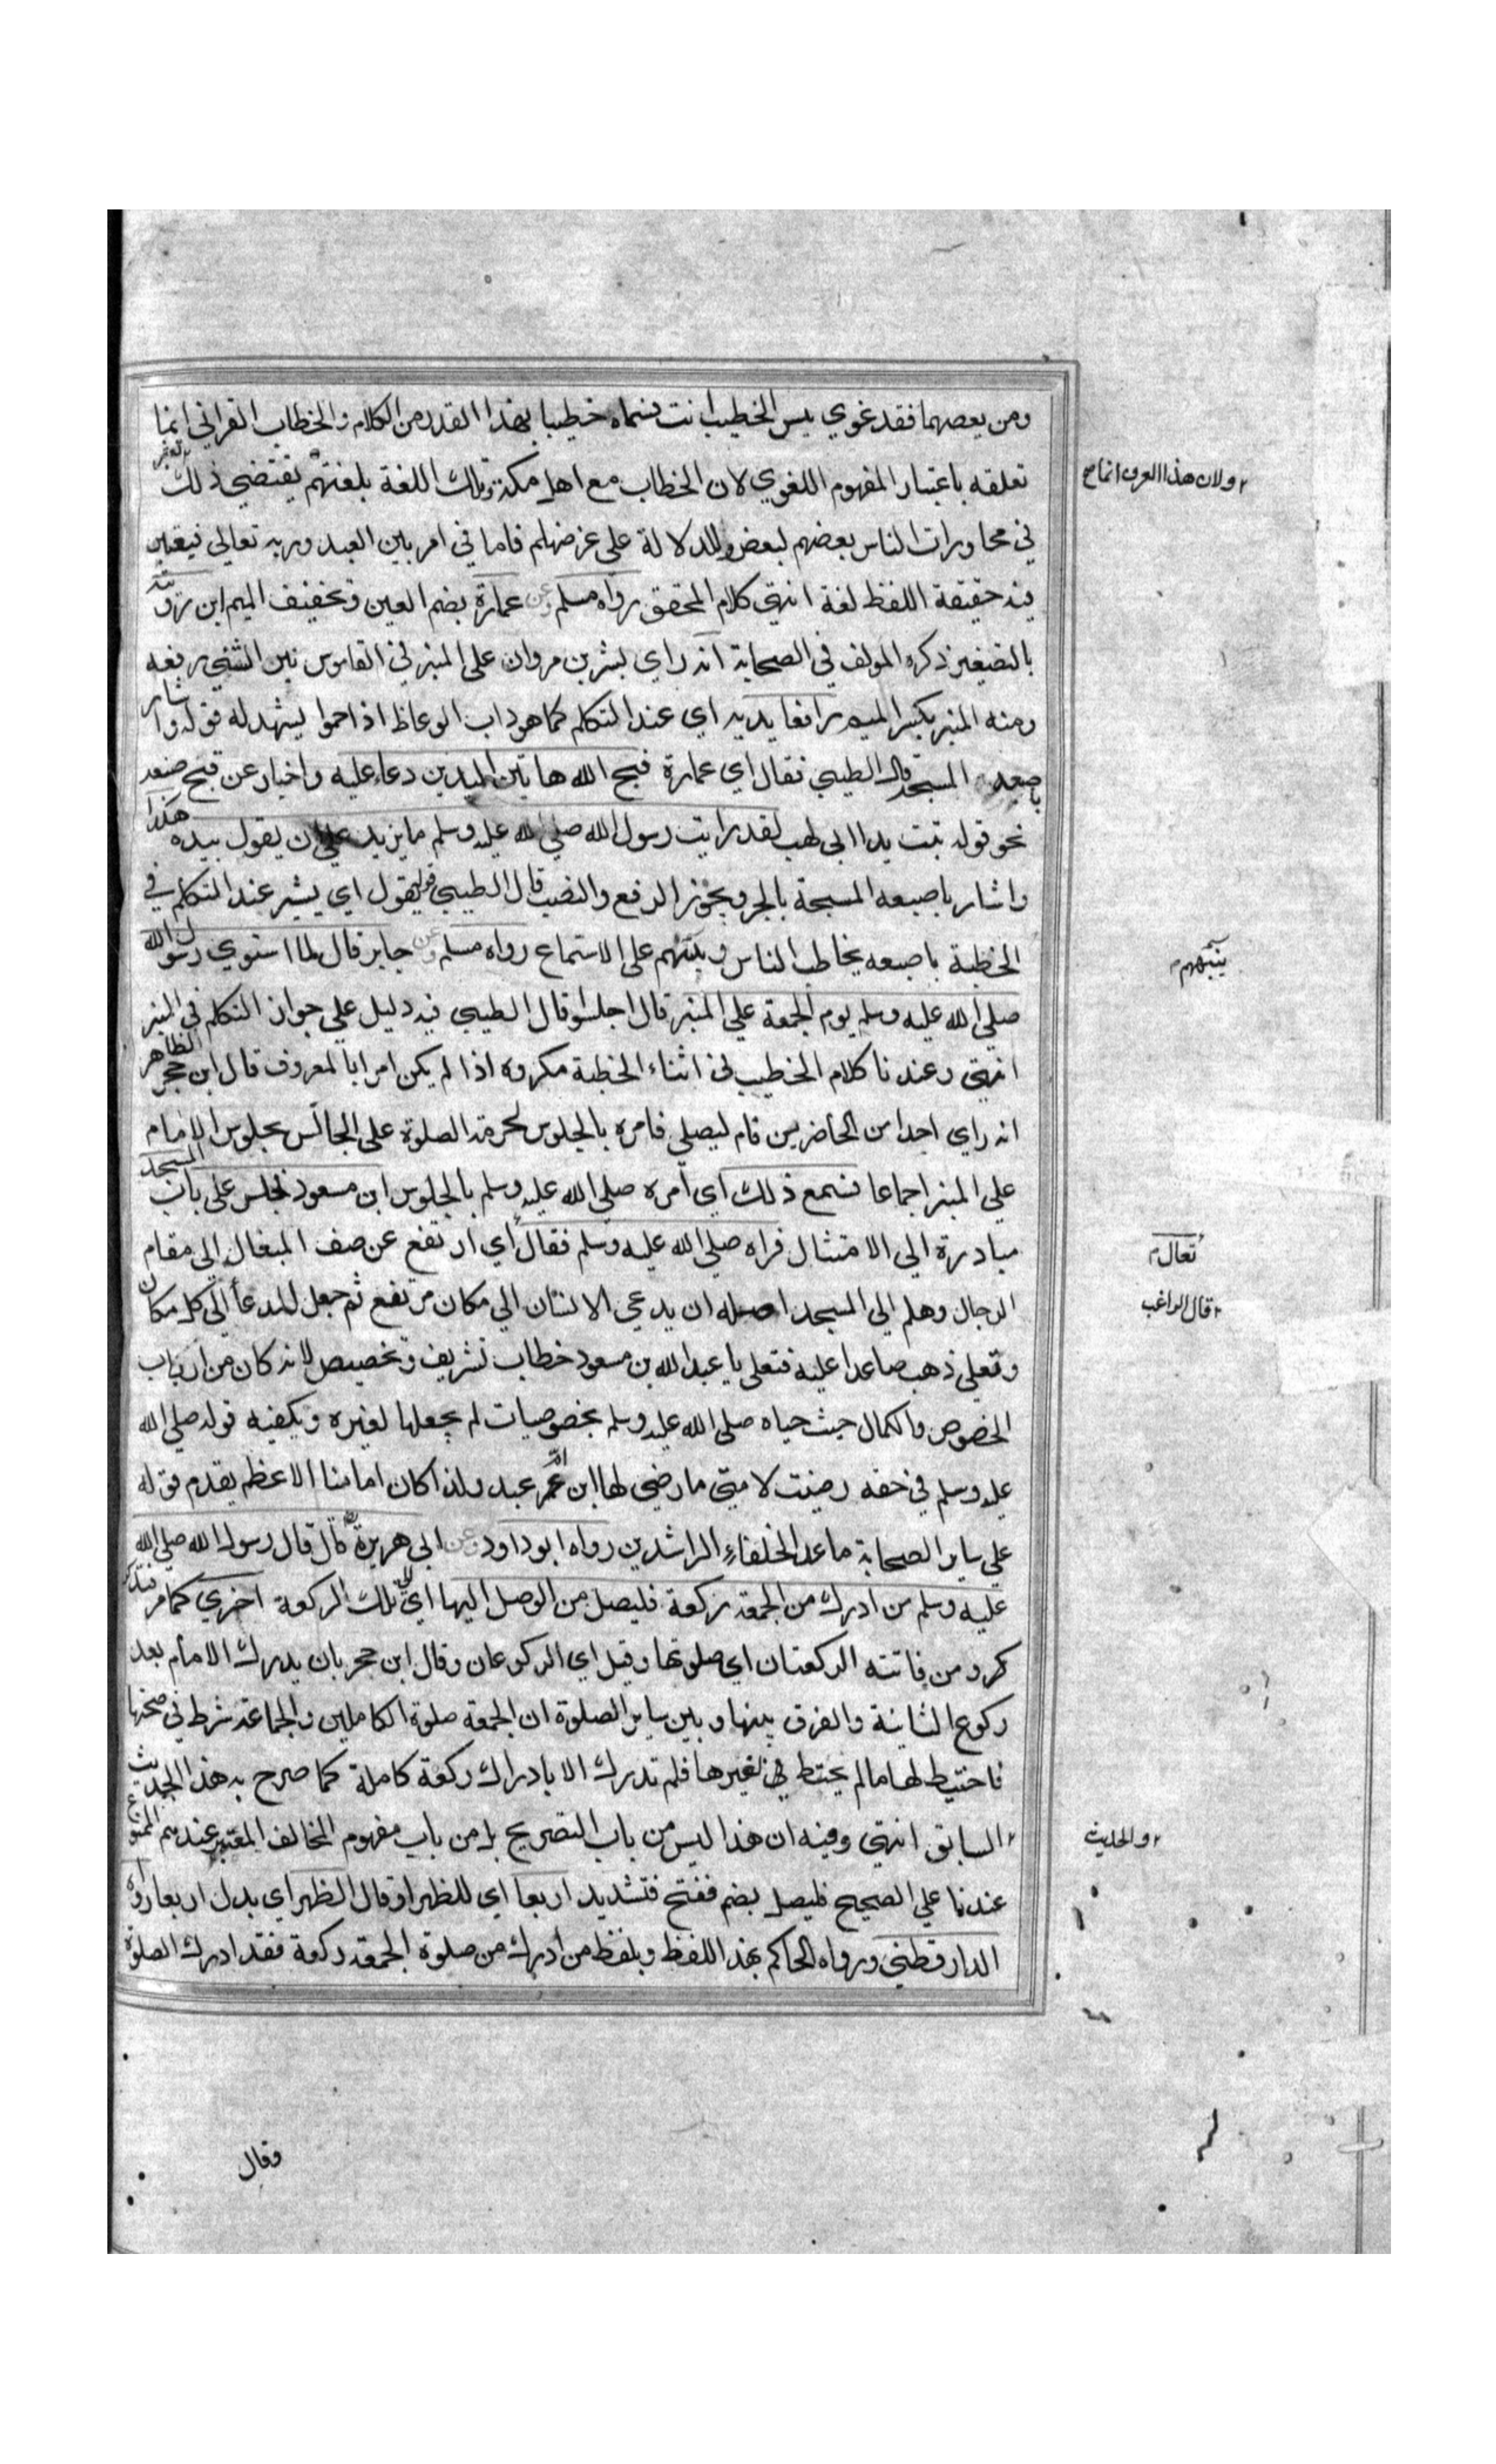 ومن يعصهما فقد غوي بيس الخطيب انت فسماه خطيبا بهذا القدر من الكلام والخطاب القراني انما
تعلقه باعتبار المفهوم اللغوي لان الخطاب مع اهل مكة وتلك اللغة بلغتهم يقتضي ذلك
ولان هذا العرف انما
في محاورات الناس بعضهم لبعض وللدلالة على غرضهم فاما في امر بين العبد وربه تعالي فيعتبر
فيه حقيقة اللفظ لغة انتهي كلام المحقق رواه مسلم وعن عمارة بضم العين وتخفيف الميم ابن رويبة
بالتصغير ذكره المولف في الصحابة انه راي بشر بن مروان على المنبر في القاموس نبر الشئ رفعه
ومنه المنبر بكسر الميم رافعا يديه اي عند التكلم كما هو داب الوعاظ اذا حموا يشهد له قوله واشار
باصبعه المسبحة قال الطيبي فقال اي عمارة قبح الله هاتين اليدين دعاء عليه واخبار عن قبح صنعه
نحو قوله تبت يدا ابي لهب لقد رايت رسول الله صلي الله عليه وسلم ما يزيد علي ان يقول بيده هكذا
واشار باصبعه المسبحة بالجر ويجوز الرفع والنصب قال الطيبي قوله يقول اي يشير عند التكلم في
الخطبة باصبعه يخاطب الناس وينبههم على الاستماع رواه مسلم وعن جابر قال لما استوي رسول الله
ينبههم
صلي الله عليه وسلم يوم الجمعة علي المنبر قال اجلسوا قال الطيبي فيه دليل علي جواز التكلم في المنبر
انتهي وعندنا كلام الخطيب في اثناء الخطبة مكروه اذا لم يكن امرا بالمعروف قال ابن حجر الظاهر
انه راي احدا من الحاضرين قام ليصلي فامره بالجلوس لحرمة الصلوة على الجالس بجلوس الامام
علي المنبر اجماعا فسمع ذلك اي امره صلي الله عليه وسلم بالجلوس ابن مسعود فجلس على باب المسجد
مبادرة الي الامتثال فراه صلي الله عليه وسلم فقال اي ارتفع عن صف النعال الي مقام
تعال
الرجال وهلم الي المسجد اصله ان يدعي الانسان الي مكان مرتفع ثم جعل للدعا الي كل مكان
قال الراغب
وتعلي ذهب صاعدا عليه فتعلي يا عبد الله بن مسعود خطاب تشريف وتخصيص لانه كان من ارباب
الخصوص والكمال حيث حباه صلي الله عليه وسلم بخصوصيات لم يجعلها لغيره ويكفيه قوله صلي الله
عليه وسلم في حقه رضيت لامتي ما رضي لها ابن ام عبد ولذا كان امامنا الاعظم يقدم قوله
علي ساير الصحابة ما عدا الخلفاء الراشدين رواه ابو داود وعن ابي هريرة قال قال رسول الله صلي الله
عليه وسلم من ادرك من الجمعة ركعة فليصل من الوصل اليها اي الي تلك الركعة اخري كما مر
كر ومن فاتته الركعتان اي صلوتها وقيل اي الركوعان وقال ابن حجر بان يدرك الامام بعد
ركوع الثانية والفرق بينها وبين ساير الصلوة ان الجمعة صلوة الكاملين والجماعة شرط في صحتها
فاحتيط لها ما لم يحتط في غيرها فلم تدرك الا بادراك ركعة كاملة كما صرح به هذا الحديث
السابق انتهي وفيه ان هذا ليس من باب التصريح بل من باب مفهوم المخالف المعتبر عندهم الممنوع
والحديث
عندنا علي الصحيح فليصل بضم ففتح فتشديد اربعا اي للظهر او قال الظهر اي بدل اربعا رواه
الدارقطني ورواه الحاكم بهذا اللفظ وبلفظ من ادرك من صلوة الجمعة ركعة فقد ادرك الصلوة
وقال